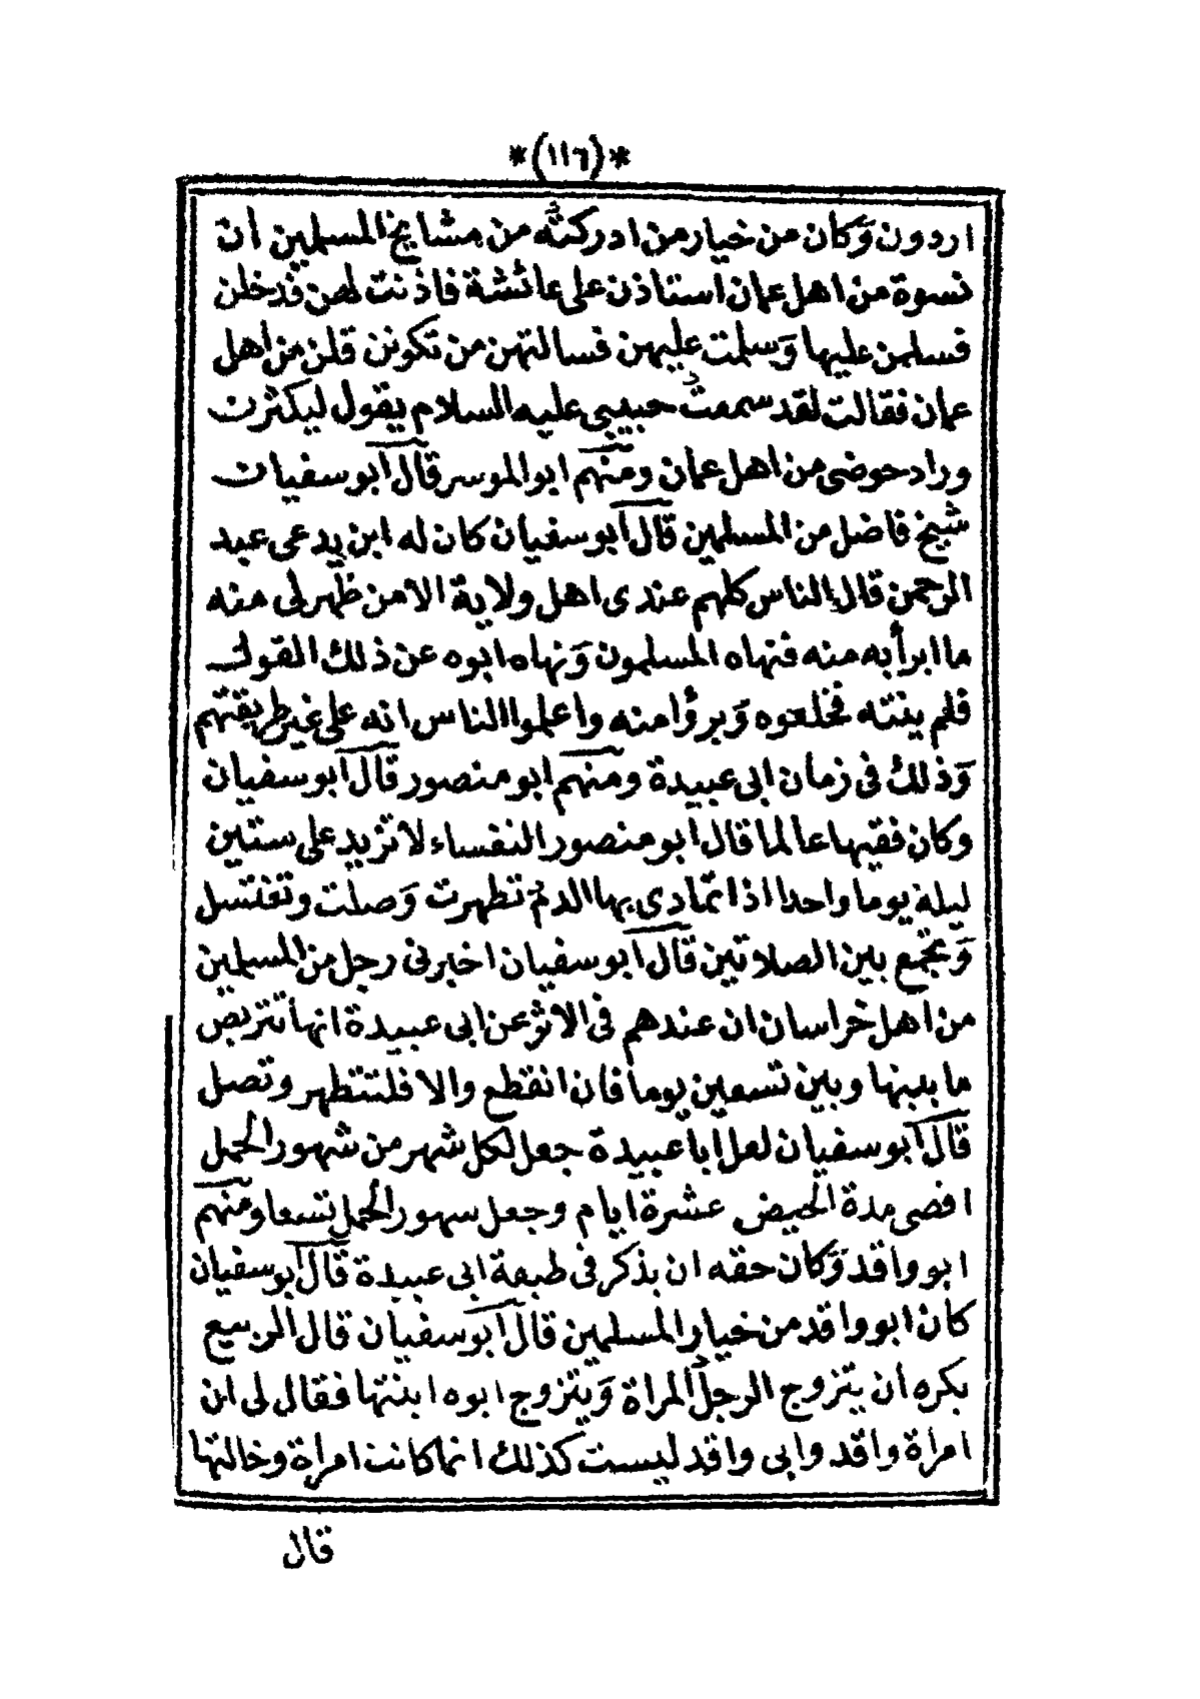 *(١١٦)*
اردون وَكان من خيار من ادركته من مشايخ المسلمين ان
نسوة من اهل عمان استاذن على عائشة فاذنت لهن فدخلن
فسلمن عليها وَسلمت عليهن فسالتهن من تكونن قلن من اهل
عمان فقالت لقد سمعت حبيبي عليه السلام يقول ليكثرت
وراد حوضى من اهل عمان ومنهم ابو الموسر قال ابو سفيات
شيخ فاضل من المسلمين قال ابو سفيان كان له ابن يدعى عبد
الرحمن قال الناس كلهم عندى اهل ولاية الا من ظهر لى منه
ما ابرأ به منه فنهاه المسلمون وَنهاه ابوه عن ذلك القول
فلم ينته فخلعوه وَبرؤا منه واعلموا الناس انه على غير طريقتهم
وَذلك فى زمان ابى عبيدة ومنهم ابو منصور قال ابو سفيان
وكان فقيها عالما قال ابو منصور النفساء لا تزيد على ستين
ليلة يوما واحدا اذا تمادى بها الدم تطهرت وَصلت وتغتسل
وَتجمع بين الصلاتين قال ابو سفيان اخبرنى رجل من المسلمين
من اهل خراسان ان عندهم فى الاثر عن ابى عبيدة انها تتربص
ما بينها وبين تسعين يوما فان انقطع والا فلتتطهر وتصل
قال ابو سفيان لعل ابا عبيدة جعل لكل شهر من شهور الحمل
اقصى مدة الحيض عشرة ايام وجعل سهور الحمل تسعا ومنهم
ابو واقد وَكان حقه ان يذكر فى طبعة ابى عبيدة قال ابو سفيان
كان ابو واقد من خيار المسلمين قال ابو سفيان قال الربيع
يكره ان يتزوج الرجل المراة وَيتزوج ابوه ابنتها فقال لى ابن
امراة واقد وابى واقد ليست كذلك انما كانت امراة وخالتها
قال